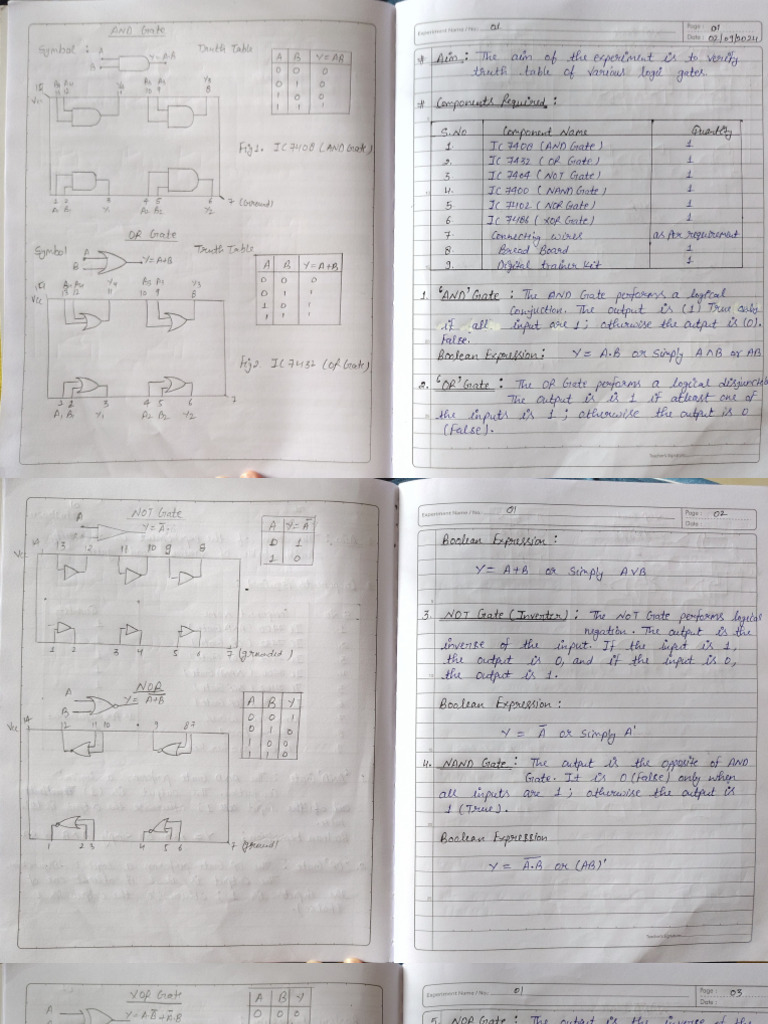 AND Gate
Symbol : A
A
Y=A.B
Truth Table
A B Y=AB
0 0 0
0 1 0
1 0 0
1 1 1
Vcc
Fig 1. IC 7408 (AND Gate)
1 2 3 4 5 6 7 (Ground)
A1 B1 Y1 A2 B2 Y2
OR Gate
Symbol A
B
Y=A+B
Truth Table
A B Y=A+B
0 0 0
0 1 1
1 0 1
1 1 1
Vcc
Fig 2 IC 7432 (OR Gate)
1 2 3 4 5 6 7
A1 B1 Y1 A2 B2 Y2
Experiment Name / No.: 01
Page : 01
Date : 02/09/2024
# Aim : The aim of the experiment is to verify
truth table of various logil gates
# Components Required :
S.No Component Name Quantity
1 IC 7408 (AND Gate) 1
2. IC 7432 (OR Gate) 1
3 IC 7404 (NOT Gate) 1
4. IC 7400 (NAND Gate) 1
5 IC 7402 (NOR Gate) 1
6 IC 7486 (XOR Gate) 1
7 Connecting wires as per requirement
8. Bread Board 1
9. Digital trainer kit 1
1. 'AND' Gate : The AND Gate performs a logical
conjuction. The output is (1) True only
if all input are 1 ; otherwise the output is (0).
False.
Boolean Expression: Y = A.B or simply A∧B or AB
2. 'OR' Gate : The OR Gate performs a logical disjunctio
The output is is 1 if atleast one of
the inputs is 1 ; otherwise the output is 0
(False).
Teacher's Signature
NOT Gate
A
Y=A̅
A Y=A̅
0 1
1 0
Vcc 14 13 12 11 10 9 8
1 2 3 4 5 6 7 (grounded)
NOR
A
B
Y= A̅+̅B̅
A B Y
0 0 1
0 1 0
1 0 0
1 1 0
Vcc 14 12 11 10 9 8 7
1 2 3 4 5 6 7 (ground)
Experiment Name / No.: 01
Page : 02
Date :
Boolean Expression :
Y= A+B or Simply A∨B
3. NOT Gate (Inverter) : The NOT Gate performs logical
negation. The output is the
inverse of the input. If the input is 1,
the output is 0, and if the input is 0,
the output is 1.
Boolean Expression :
Y = A̅ or simply A'
4. NAND Gate : The output is the opposite of AND
Gate. It is 0 (False) only when
all inputs are 1 ; otherwise the output is
1 (True).
Boolean Expression
Y = A̅.̅B̅ or (AB)'
Teacher's Signature
XOR Gate
A
A B Y
0 0 0
Experiment Name / No.: 01
Page : 03
Date :
5. NOR Gate : The output is the inverse of the